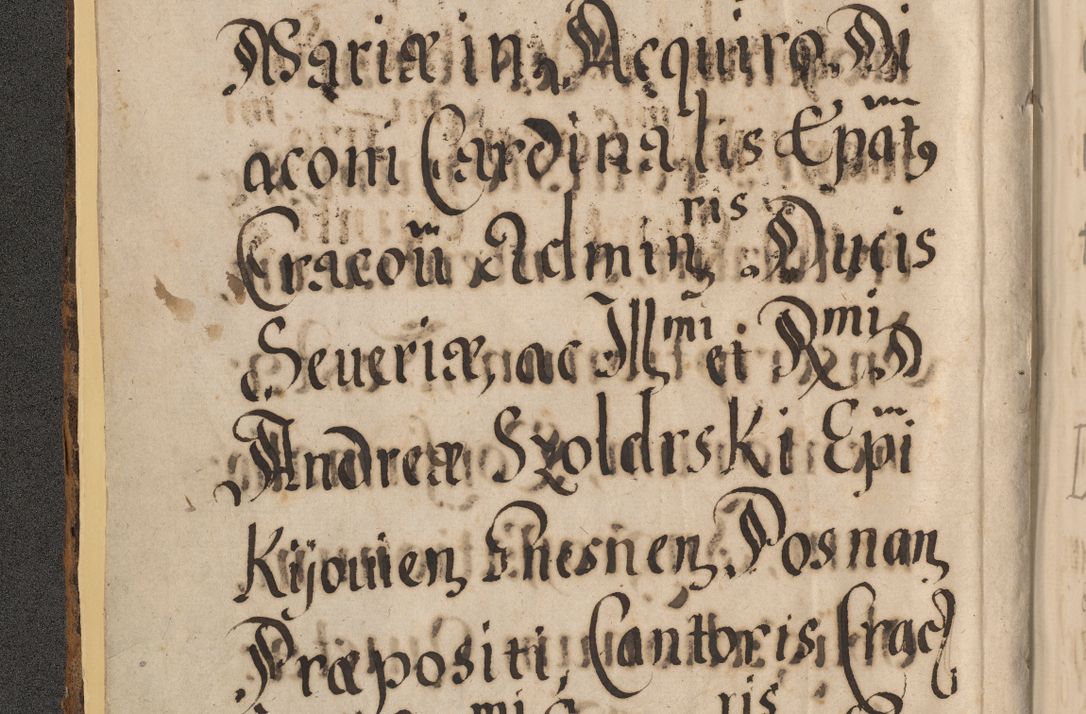 Mariæ in Acquiro Di
aconi Cardinalis Epat9
Cracoū Adminris Ducis
Seueriæ, ac Illmi et Rmi D
Andreæ Szoldrski Epi
Kijouien Gnesnen Posnan
Præpositi, Cantoris Crac